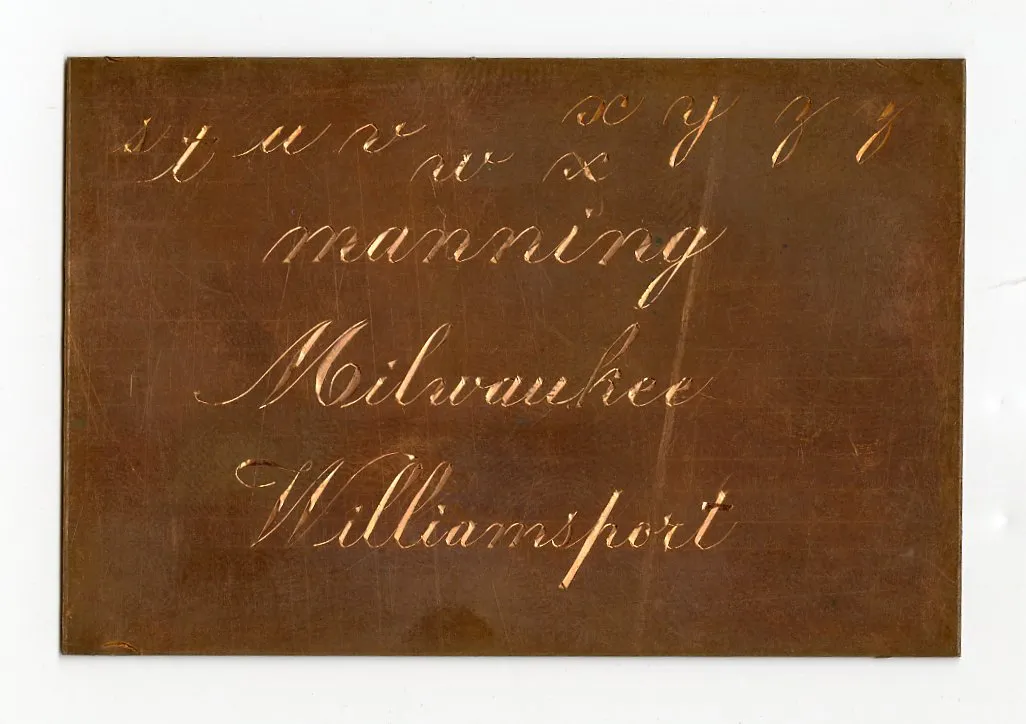 s t u v w x x y z z
manning
Milwaukee
Williamsport